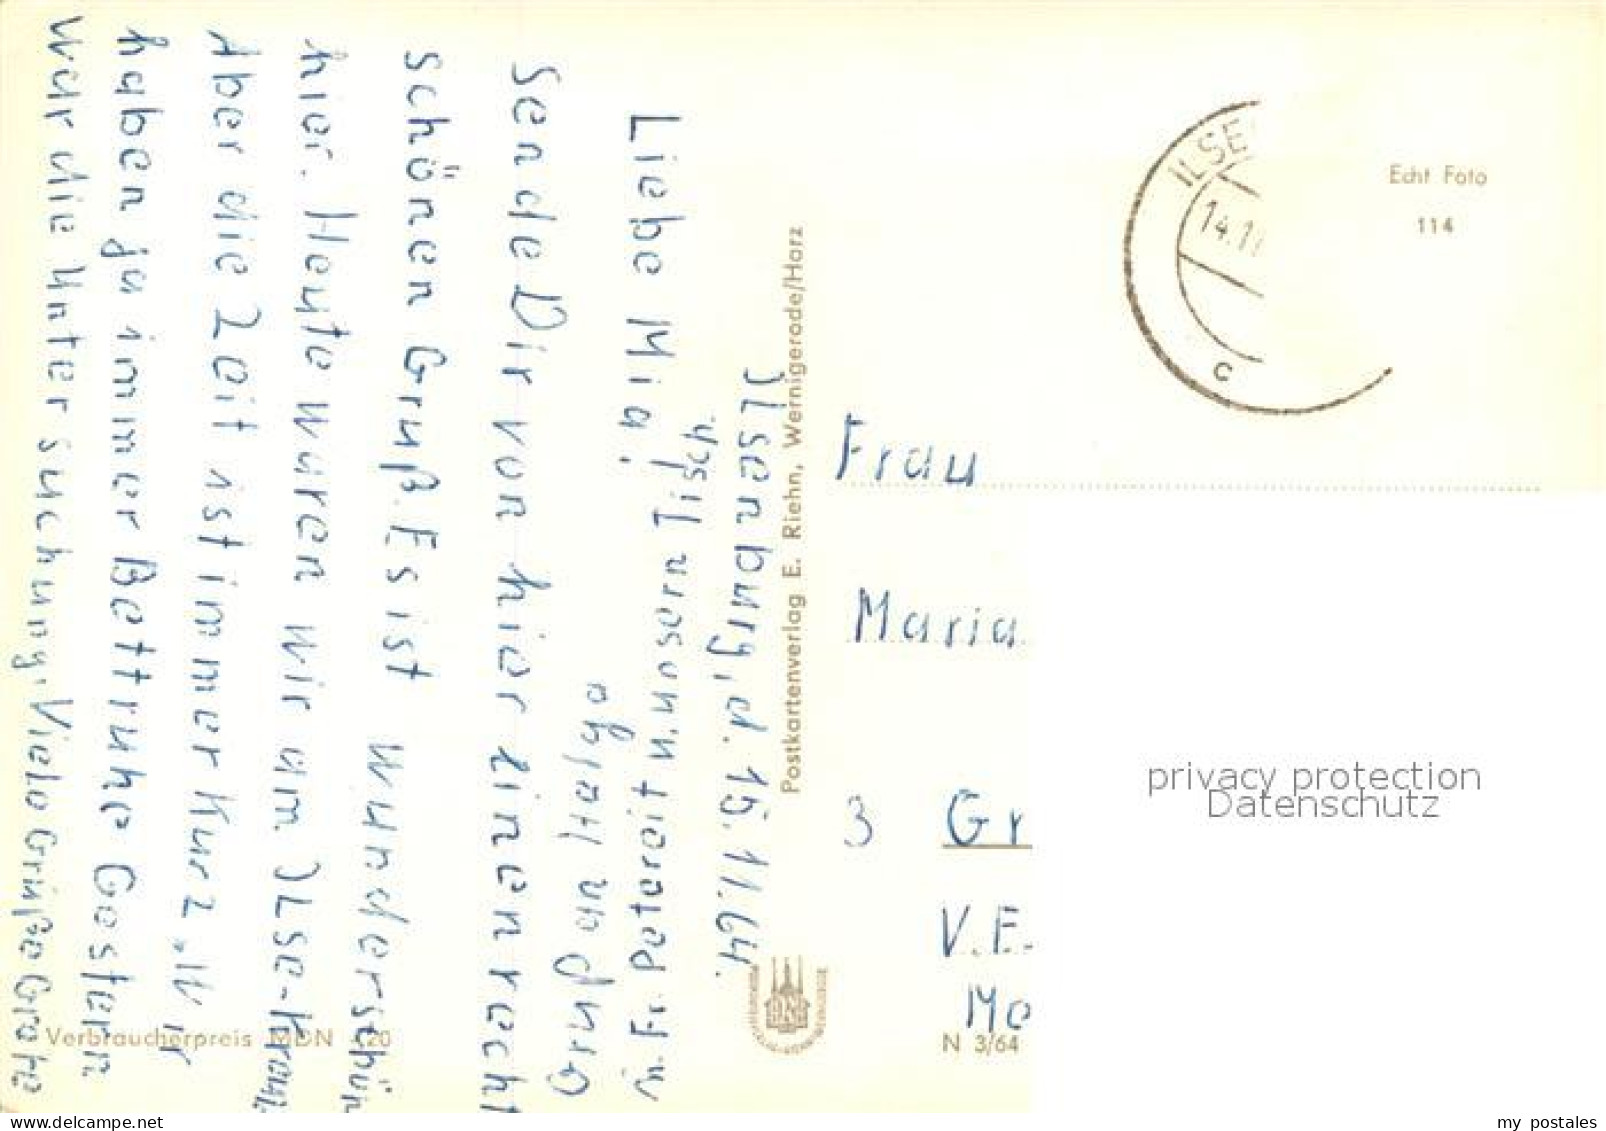 Ilsenburg, d. 15.11.64.
Liebe Mia!
Sende Dir von hier einen recht
schönen Gruß. Es ist wunderschön
hier. Heute waren wir am Ilse-
Aber die Zeit ist immer kurz. Wir
haben ja immer Bettruhe Gestern
war die Untersuchung. Viele Grüße Grete
Gruß von Helga
u. Fr. Petereit u. unsern Tisch.
Postkartenverlag E. Riehn, Wernigerode/Harz
Verbraucherpreis MDN -,20
ILSE
14.1
c
Echt Foto
114
Frau
Maria
3 Gr
V.E.
Me
N 3/64
privacy protection
Datenschutz
my postales